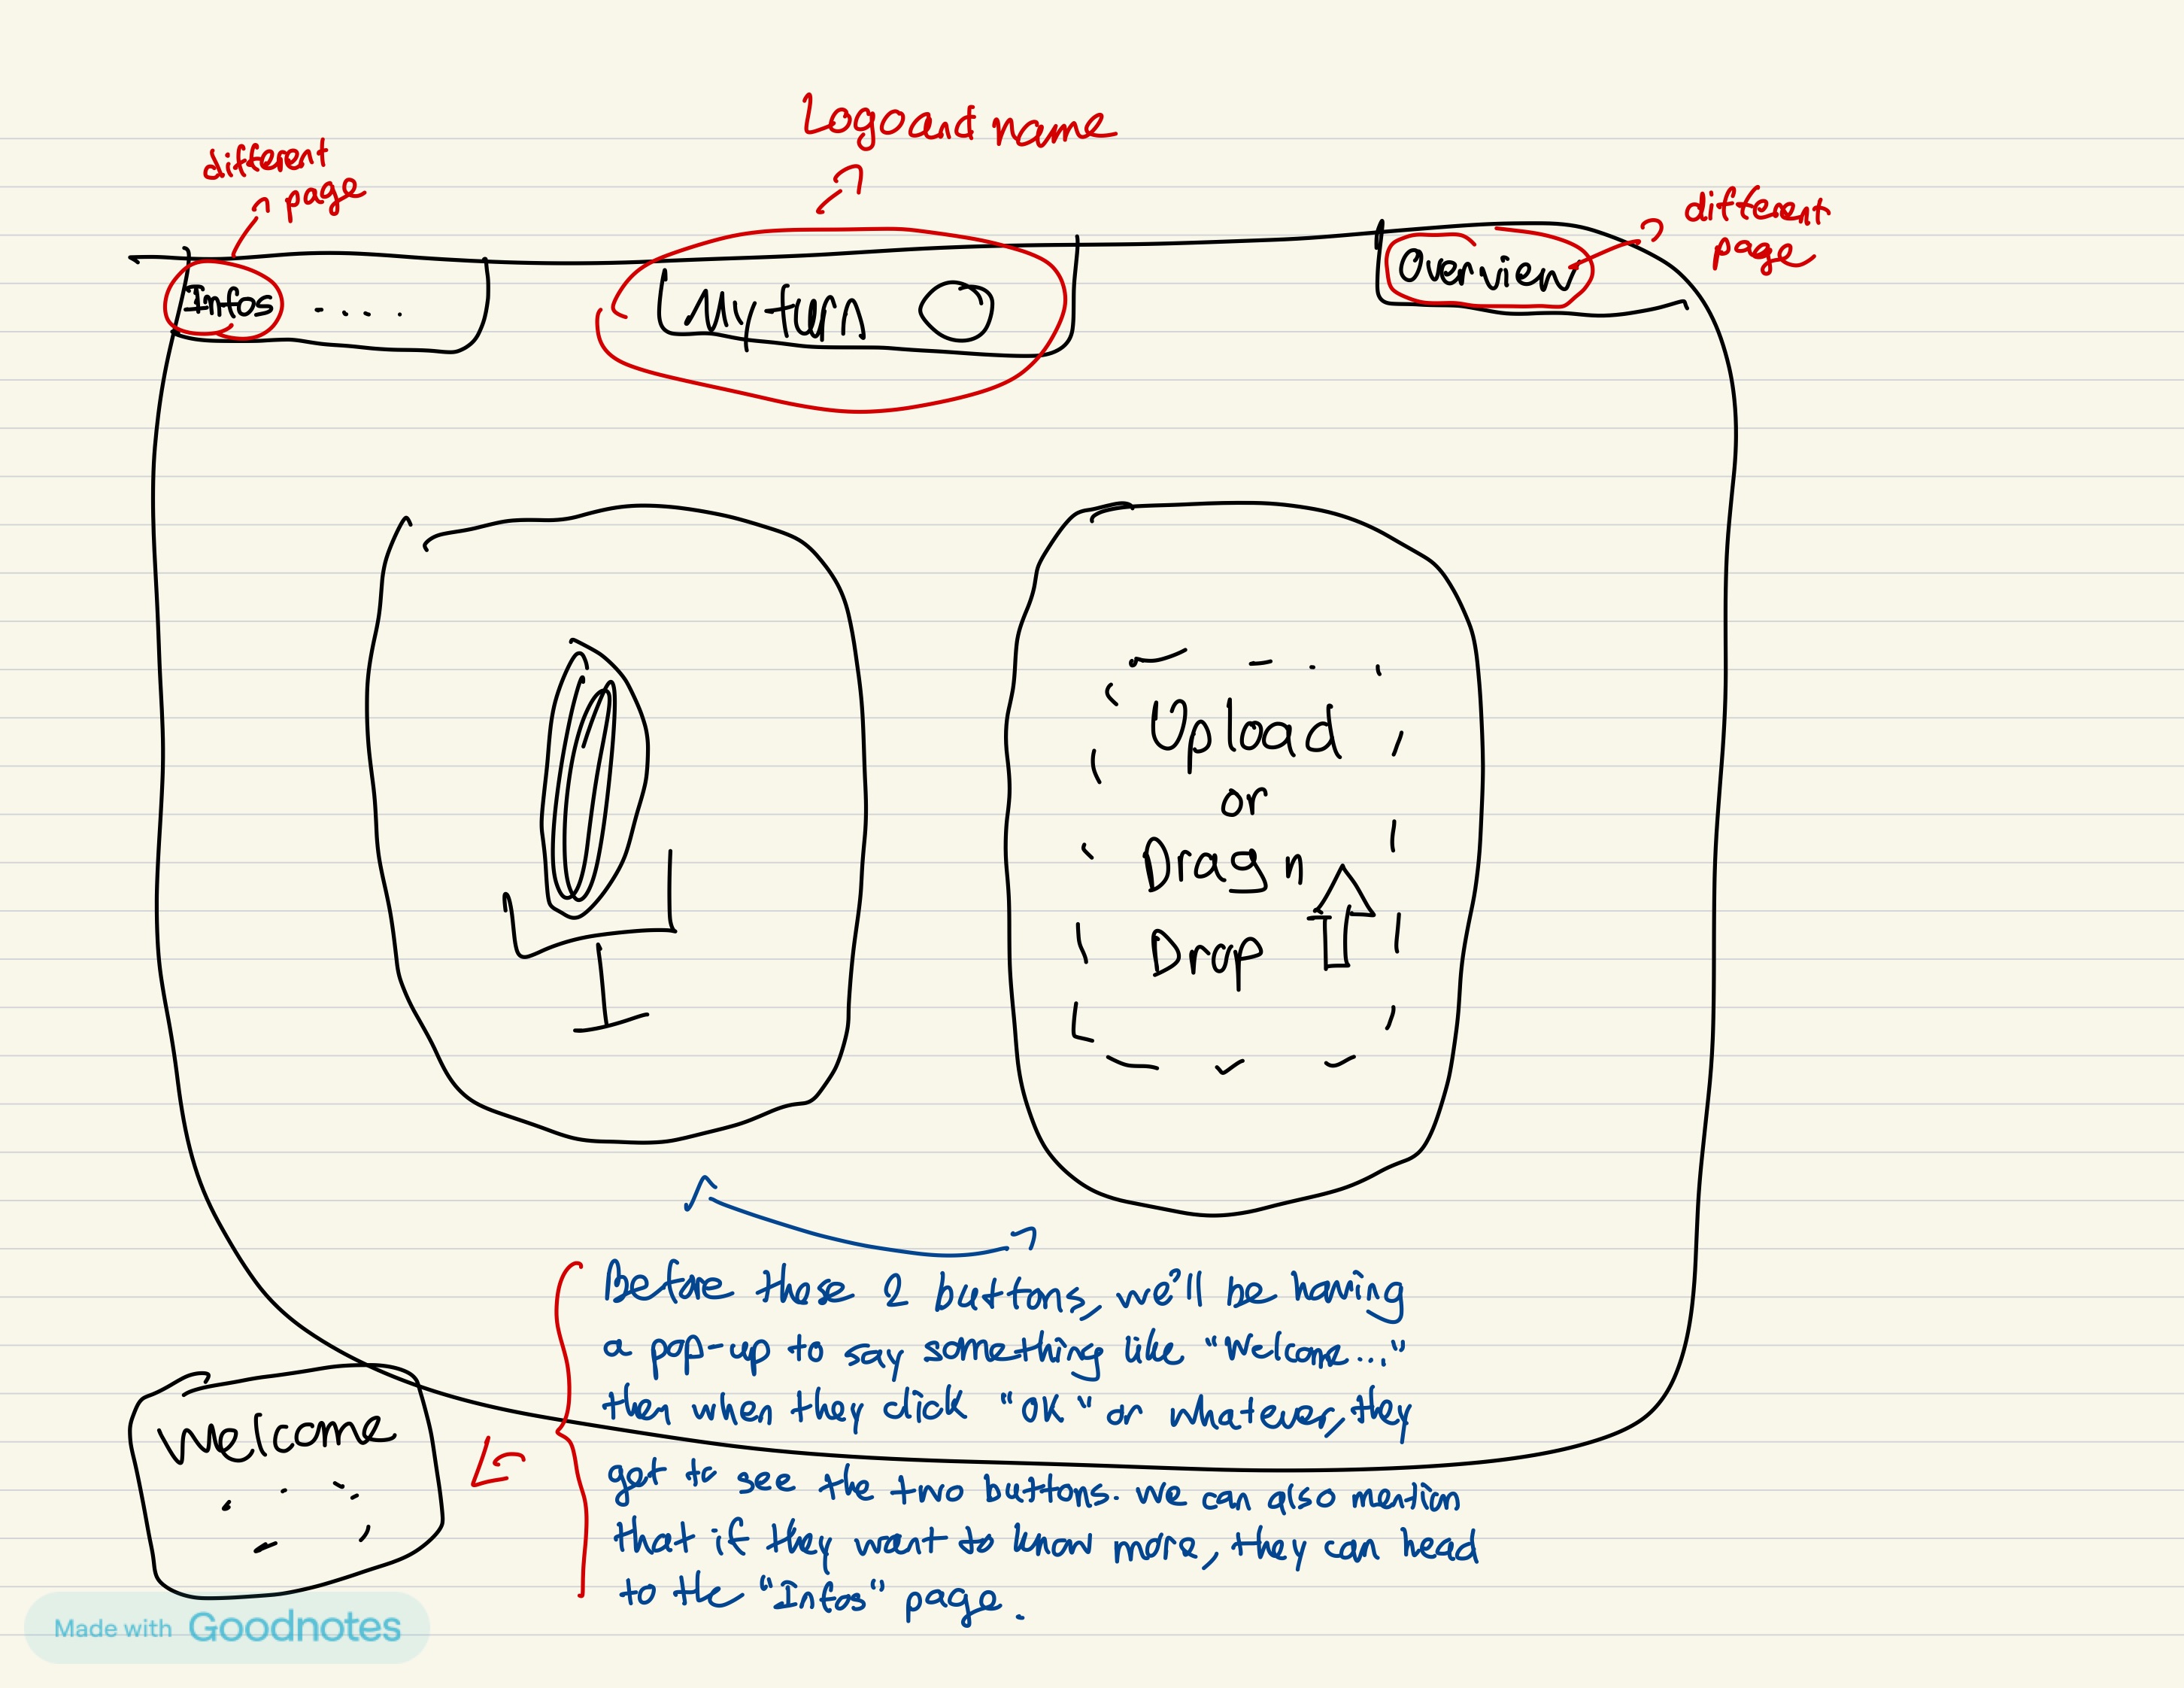 Logo and name
different
page
different
page
Infos ....
My turn
Overview
Upload
or
Drag n
Drop
Before these 2 buttons, we'll be having
a pop-up to say something like "Welcome..."
then when they click "OK" or whatever, they
get to see the two buttons. We can also mention
that if they want to know more, they can head
to the "Infos" page.
Welcome
Made with Goodnotes